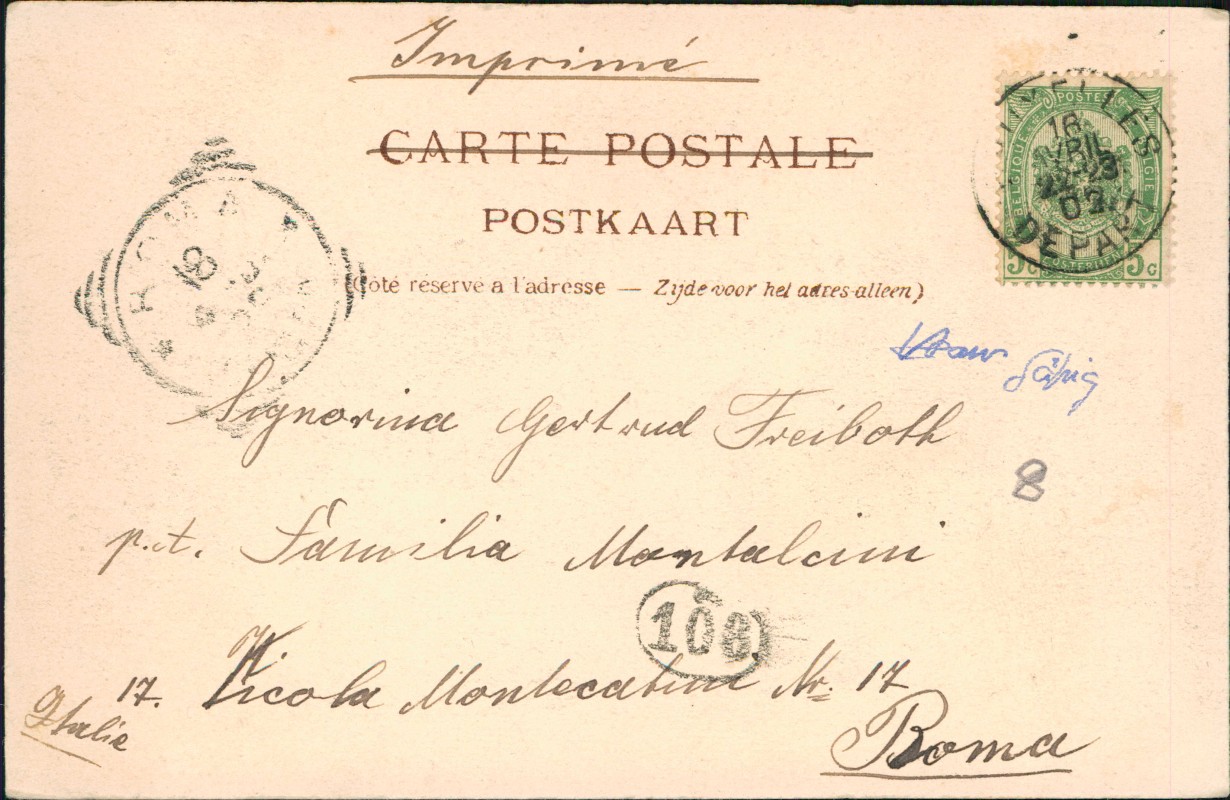 Imprimé
CARTE POSTALE
POSTKAART
(Côté réservé à l'adresse — Zijde voor het adres alleen)
POSTES
BELGIQUE
BELGIË
5c 5c
16
AVRIL
02
DEPART
ROMA
Signorina Gertrud Freiboth
8
p.t. Familia Montalcini
108
17. Vicola Montecatini Nr. 17
Italie
Roma